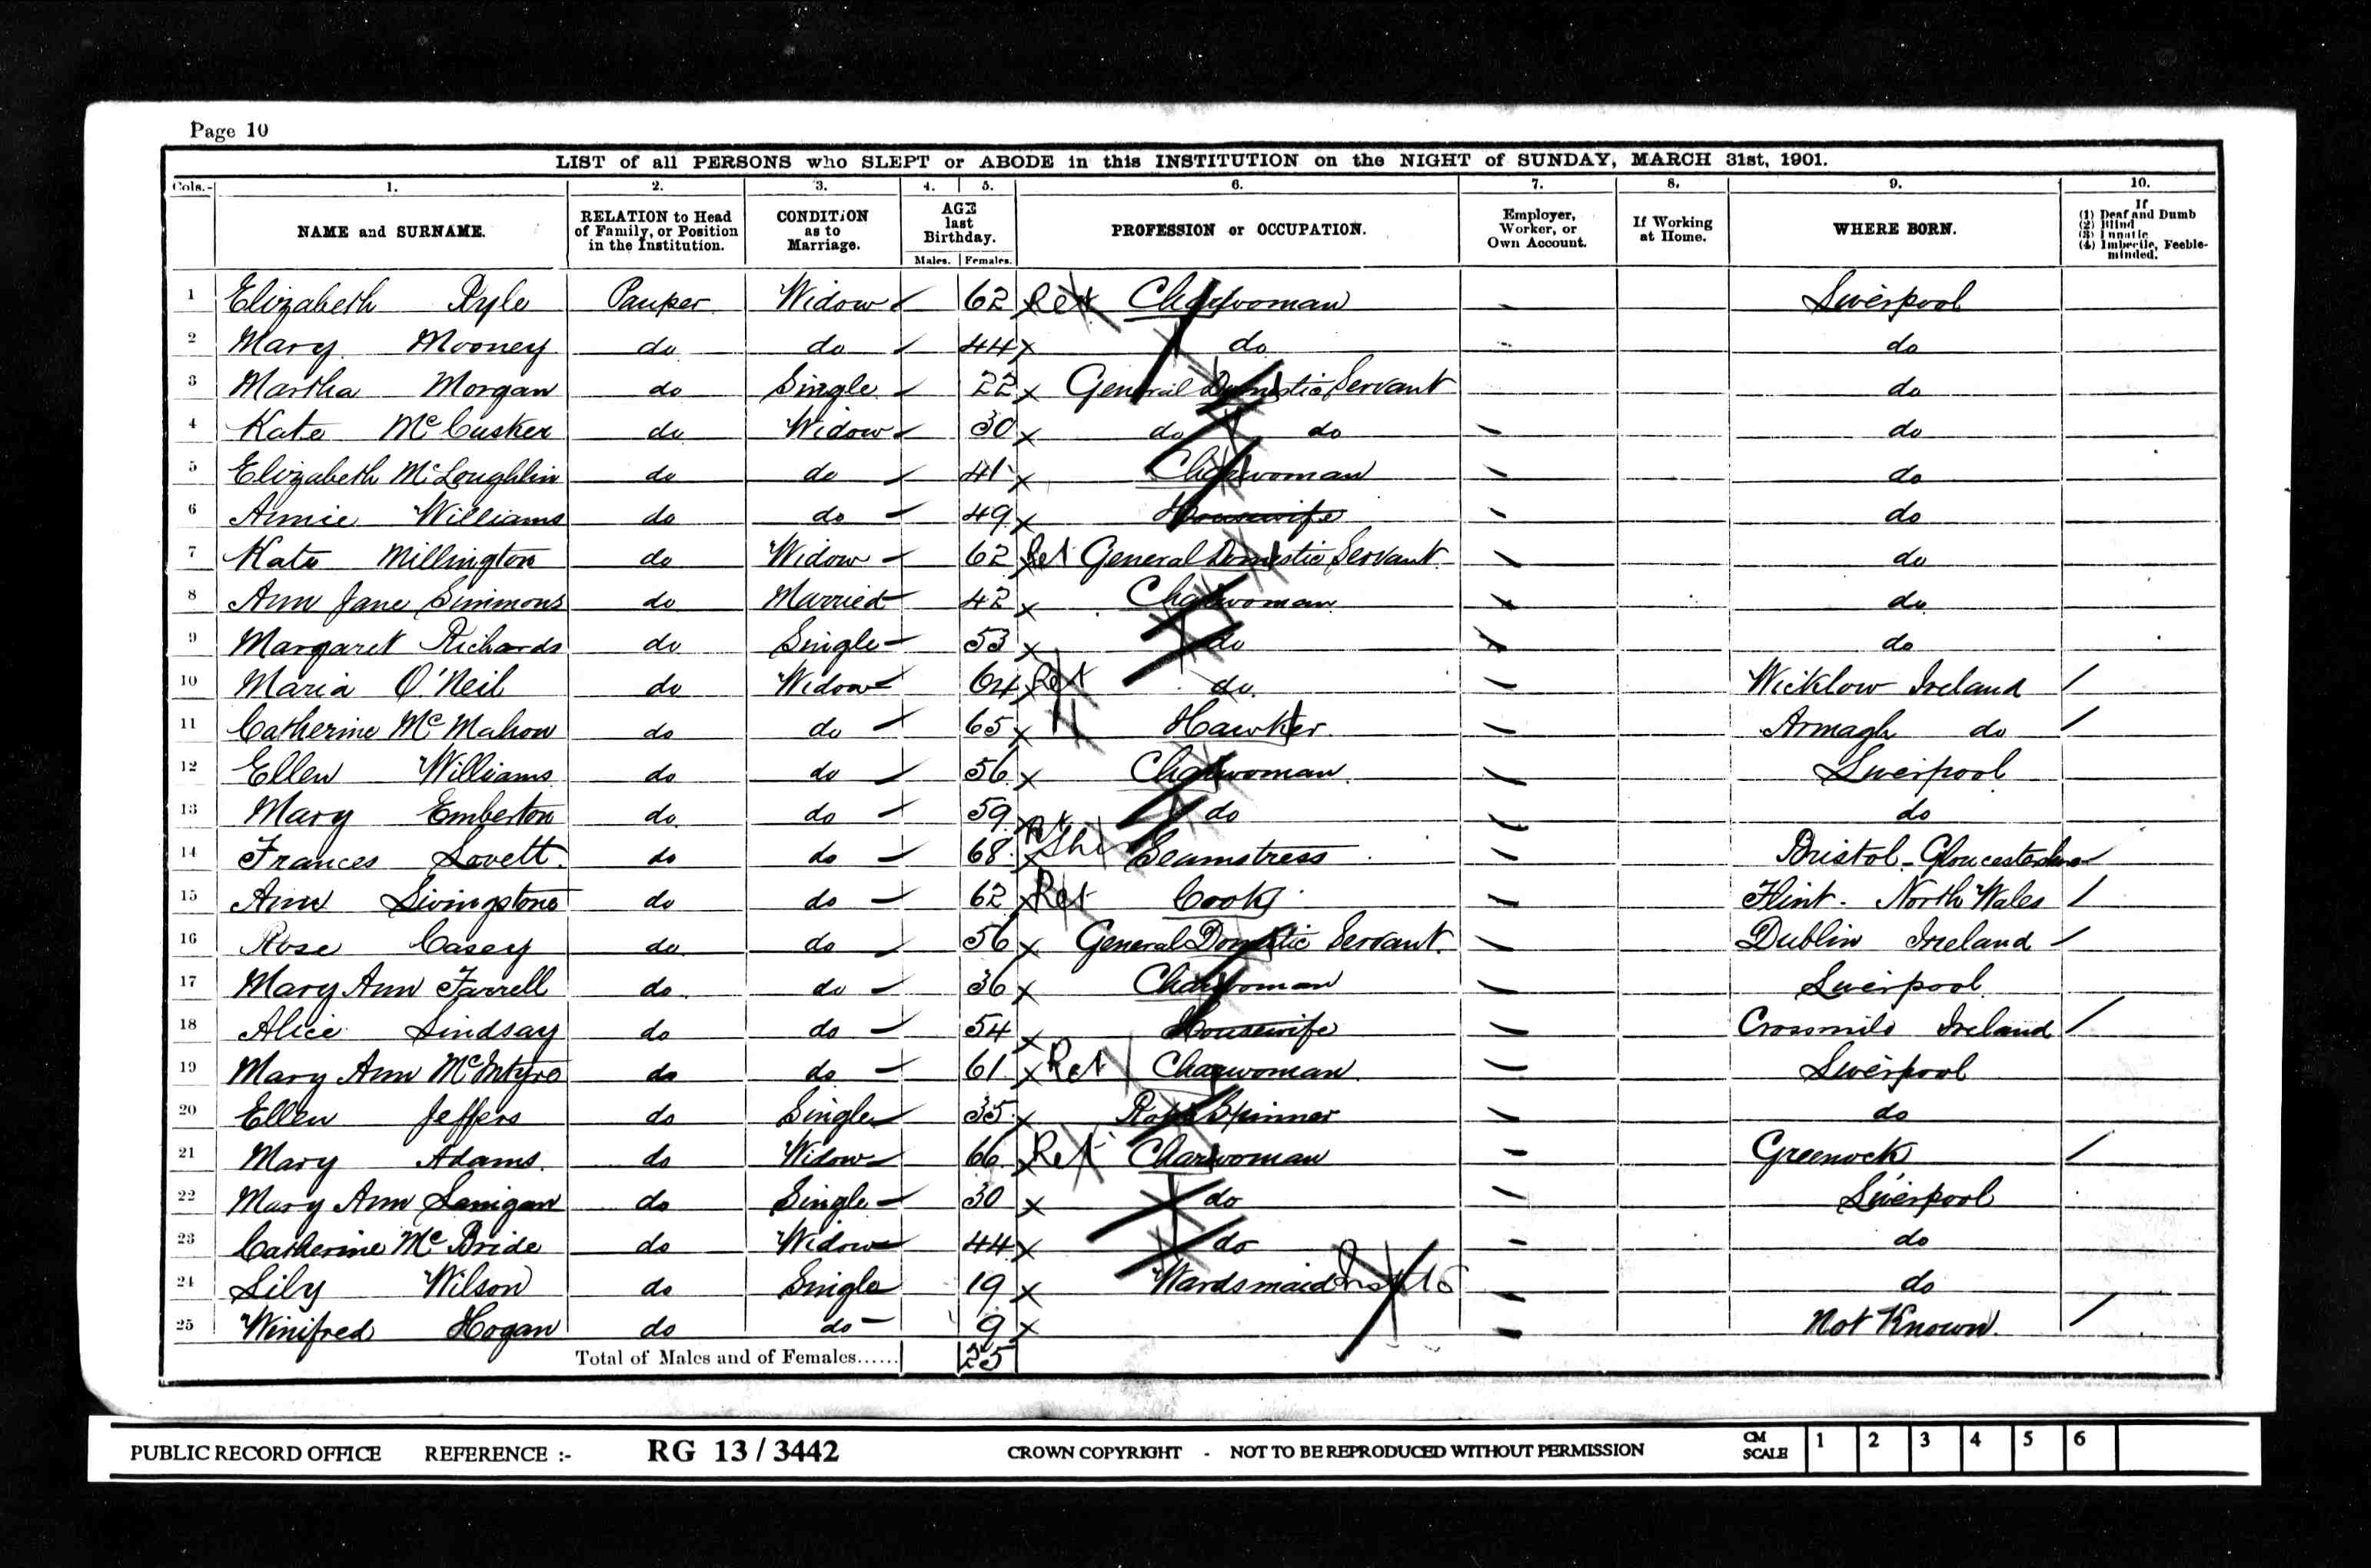 Page 10
LIST of all PERSONS who SLEPT or ABODE in this INSTITUTION on the NIGHT of SUNDAY, MARCH 31st, 1901.
Cols.- 1. 2. 3. 4. 5. 6. 7. 8. 9. 10.
NAME and SURNAME. RELATION to Head of Family, or Position in the Institution. CONDITION as to Marriage. AGE last Birthday. Males. Females. PROFESSION or OCCUPATION. Employer, Worker, or Own Account. If Working at Home. WHERE BORN. If (1) Deaf and Dumb (2) Blind (3) Lunatic (4) Imbecile, Feeble-minded.
1 Elizabeth Ryle Pauper Widow 62 Ret Charwoman Liverpool
2 Mary Mooney do do 44 do do
3 Martha Morgan do Single 22 General Domestic Servant do
4 Kate McCusker do Widow 30 do do do
5 Elizabeth McLoughlin do do 41 Charwoman do
6 Annie Williams do do 49 Housewife do
7 Kate Millington do Widow 62 Ret General Domestic Servant do
8 Ann Jane Simmons do Married 42 Charwoman do
9 Margaret Richards do Single 53 do do
10 Maria O'Neil do Widow 64 Ret do Wicklow Ireland
11 Catherine McMahon do do 65 Hawker Armagh do
12 Ellen Williams do do 56 Charwoman Liverpool
13 Mary Emberton do do 59 do do
14 Frances Lovett do do 68 Seamstress Bristol - Gloucestershire
15 Ann Livingstone do do 62 Ret Cook Flint - North Wales
16 Rose Casey do do 56 General Domestic Servant Dublin Ireland
17 Mary Ann Farrell do do 36 Charwoman Liverpool
18 Alice Lindsay do do 54 Housewife Ireland
19 Mary Ann McIntyre do do 61 Ret Charwoman Liverpool
20 Ellen Jeffers do Single 35 Rope Spinner do
21 Mary Adams do Widow 66 Ret Charwoman Greenock
22 Mary Ann Lanigan do Single 30 do Liverpool
23 Catherine McBride do Widow 44 do do
24 Lily Wilson do Single 19 Wardsmaid do
25 Winifred Hogan do do 9 Not Known
Total of Males and of Females...... 25
PUBLIC RECORD OFFICE REFERENCE :- RG 13 / 3442 CROWN COPYRIGHT - NOT TO BE REPRODUCED WITHOUT PERMISSION CM SCALE 1 2 3 4 5 6